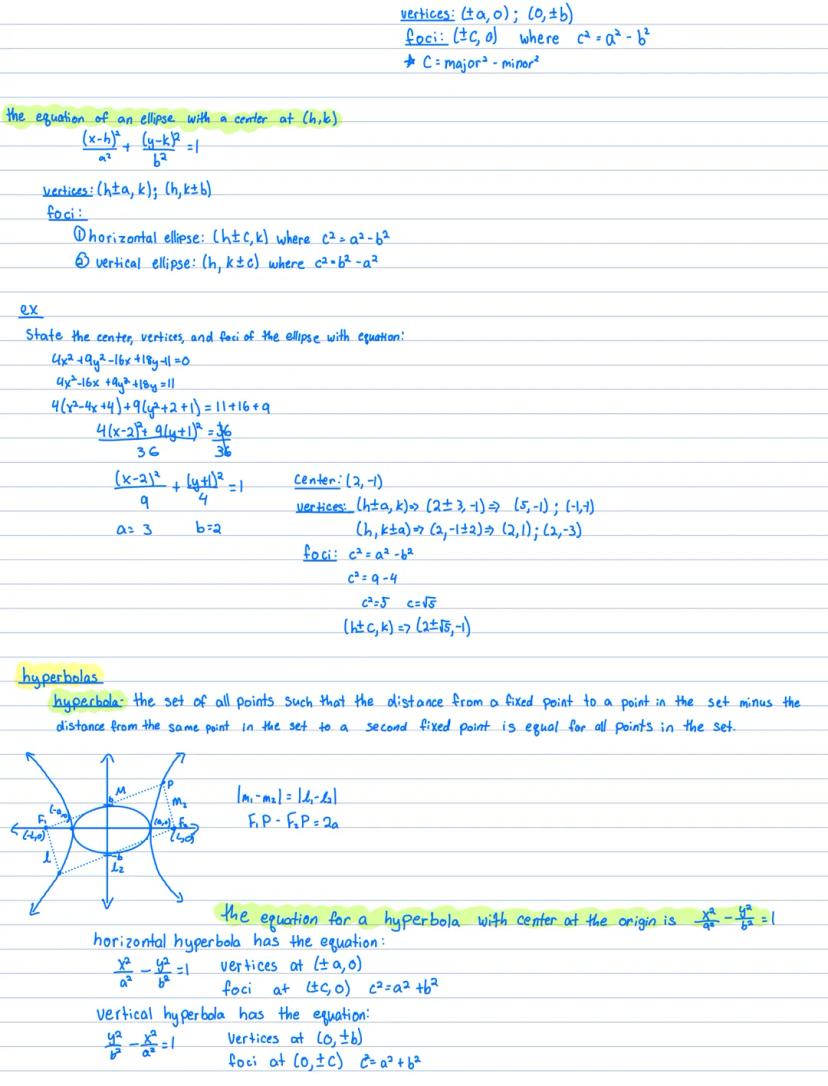 vertices: (±a, 0) ; (0, ±b)
foci: (±c, 0) where c² = a² - b²
* C = major² - minor²
the equation of an ellipse with a center at (h, k)
(x-h)²/a² + (y-k)²/b² = 1
vertices: (h±a, k); (h, k±b)
foci:
① horizontal ellipse: (h±c, k) where c² = a² - b²
② vertical ellipse: (h, k±c) where c² = b² - a²
ex
State the center, vertices, and foci of the ellipse with equation:
4x² + 9y² - 16x + 18y - 11 = 0
4x² - 16x + 9y² + 18y = 11
4(x² - 4x + 4) + 9(y² + 2 + 1) = 11 + 16 + 9
4(x-2)² + 9(y+1)² = 36
36 36
(x-2)²/9 + (y+1)²/4 = 1
a = 3 b = 2
center: (2, -1)
vertices: (h±a, k) => (2±3, -1) => (5, -1) ; (-1, -1)
(h, k±a) => (2, -1±2) => (2, 1) ; (2, -3)
foci: c² = a² - b²
c² = 9 - 4
c² = 5 c = √5
(h±c, k) => (2±√5, -1)
hyperbolas
hyperbola- the set of all points such that the distance from a fixed point to a point in the set minus the
distance from the same point in the set to a second fixed point is equal for all points in the set.
P
M
b
m₂
F₁
(-a,0)
(a,0)
F₂
(-c,0)
(c,0)
-b
l
l₂
|m₁ - m₂| = |l₁ - l₂|
F₁P - F₂P = 2a
the equation for a hyperbola with center at the origin is x²/a² - y²/b² = 1
horizontal hyperbola has the equation:
x²/a² - y²/b² = 1 vertices at (±a, 0)
foci at (±c, 0) c² = a² + b²
vertical hyperbola has the equation:
y²/b² - x²/a² = 1 vertices at (0, ±b)
foci at (0, ±c) c² = a² + b²